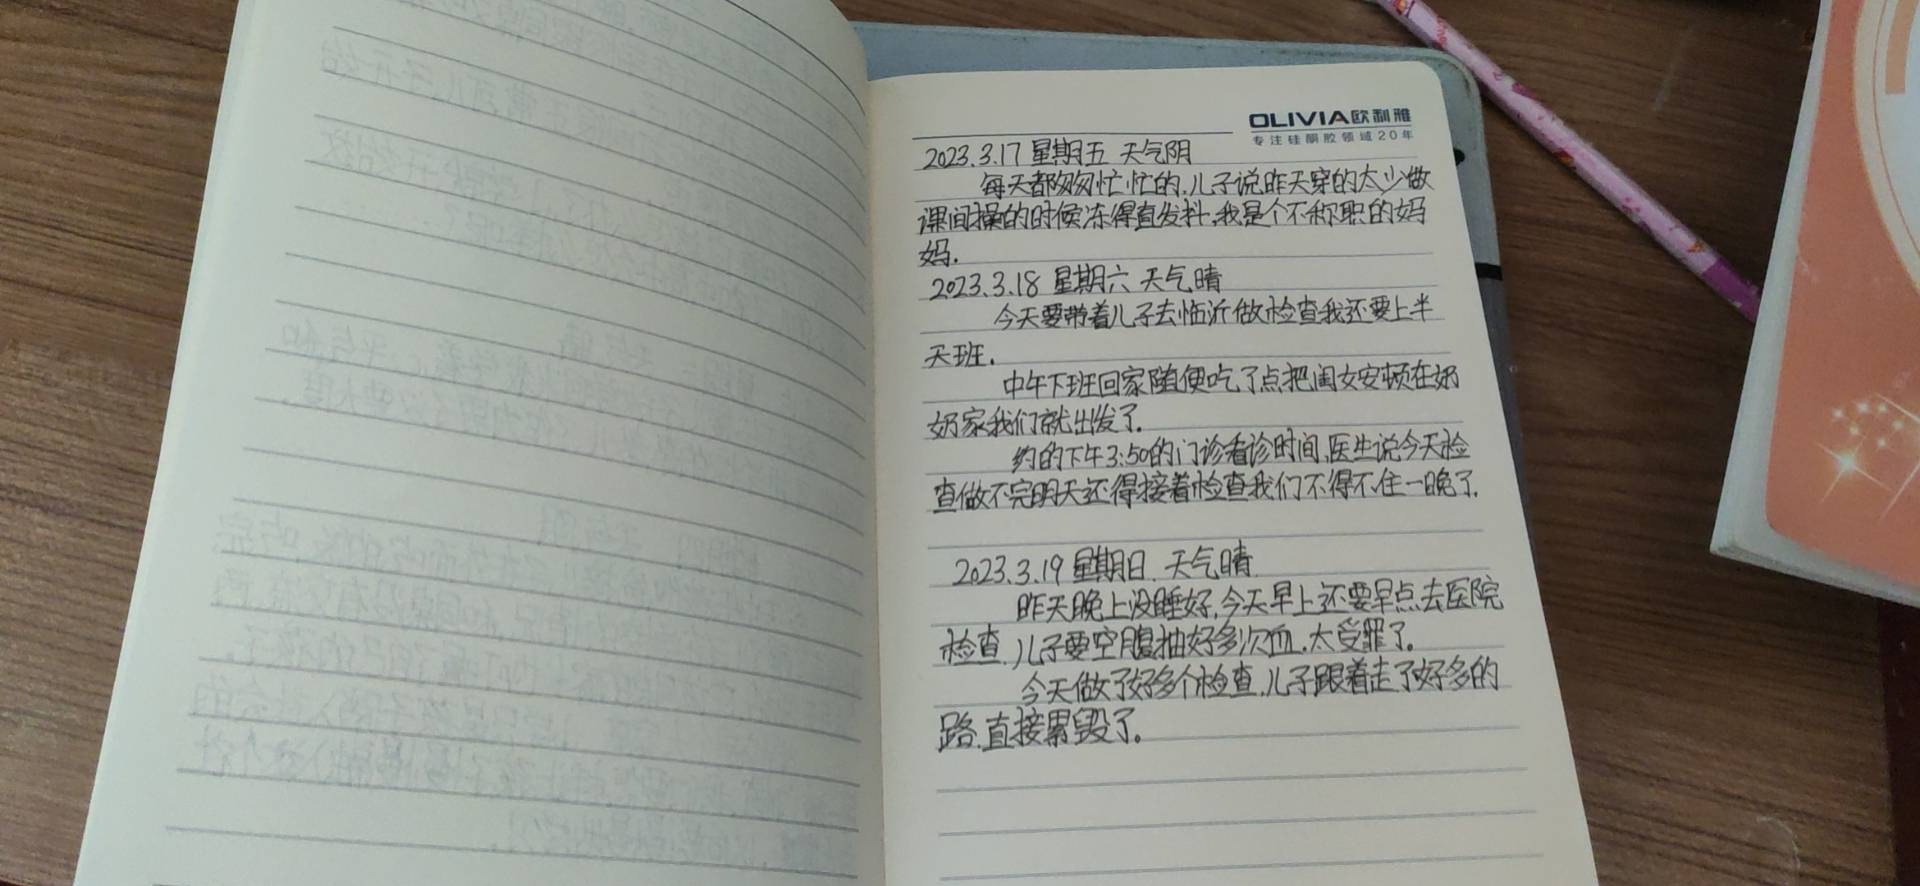 OLIVIA欧利雅
专注硅酮胶领域20年
2023.3.17 星期五 天气阴
每天都匆匆忙忙的,儿子说昨天穿的太少做
课间操的时候冻得直发抖,我是个不称职的妈
妈.
2023.3.18 星期六 天气晴
今天要带着儿子去临沂做检查我还要上半
天班.
中午下班回家随便吃了点把闺女安顿在奶
奶家我们就出发了.
约的下午3:50的门诊看诊时间,医生说今天检
查做不完明天还得接着检查我们不得不住一晚了.
2023.3.19 星期日. 天气晴
昨天晚上没睡好,今天早上还要早点去医院
检查,儿子要空腹抽好多次血,太受罪了.
今天做了好多个检查,儿子跟着走了好多的
路,直接累毁了.